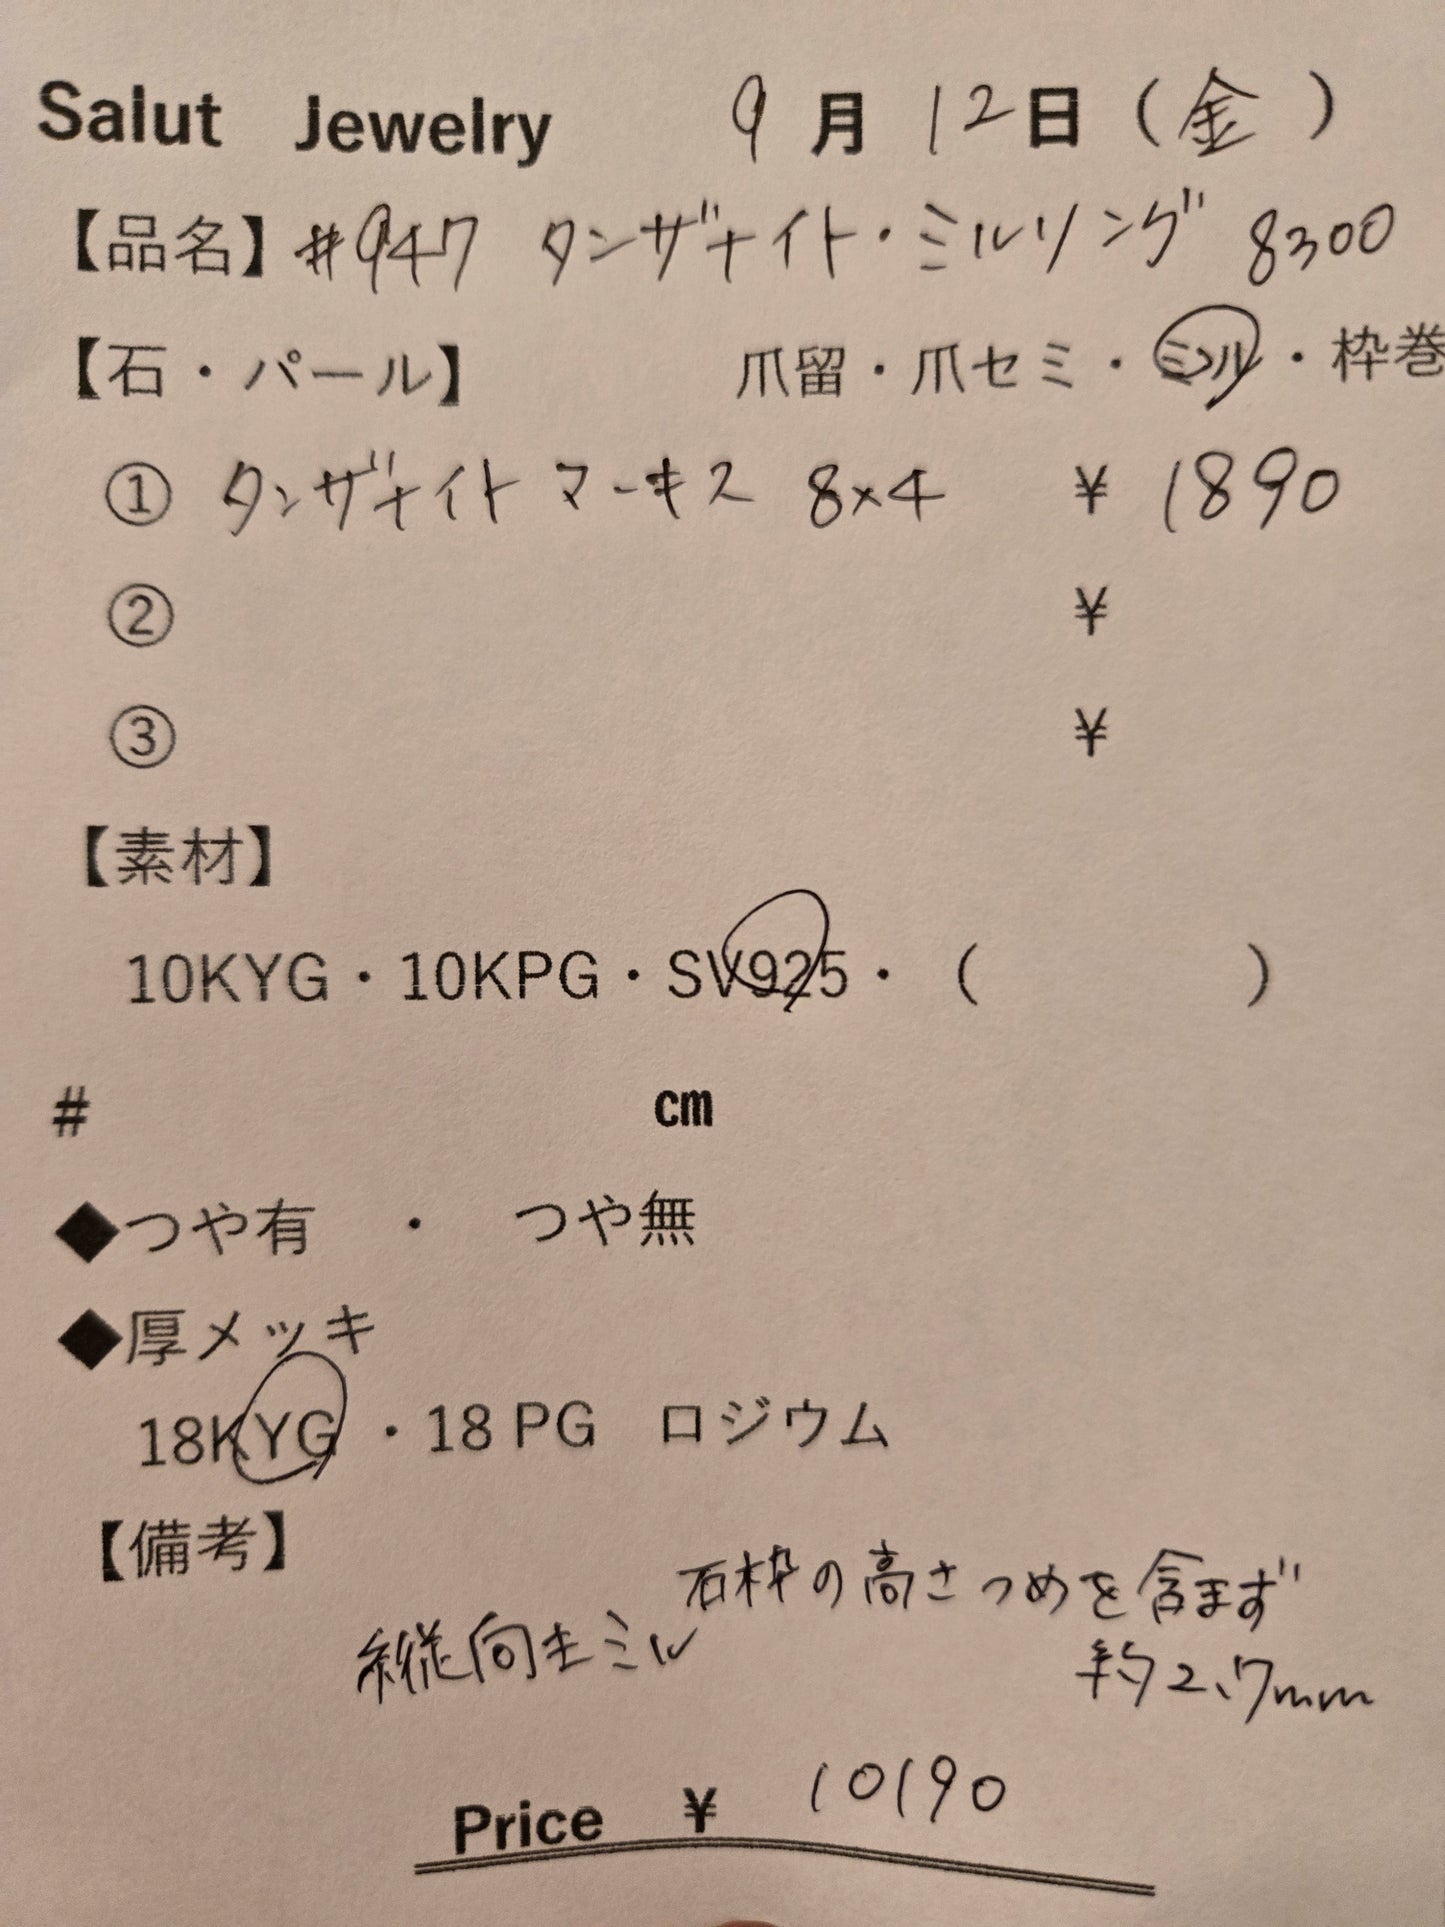 Salut Jewelry 9月12日(金)
【品名】#947 タンザナイト・ミルリング 8300
【石・パール】 爪留・爪セミ・ミル・枠巻
① タンザナイト マーキス 8×4 ¥1890
② ¥
③ ¥
【素材】
10KYG・10KPG・SV925・( )
# cm
◆つや有 ・ つや無
◆厚メッキ
18KYG ・18 PG ロジウム
【備考】
石枠の高さつめを含まず
縦向きミル 約2.7mm
Price ¥ 10190